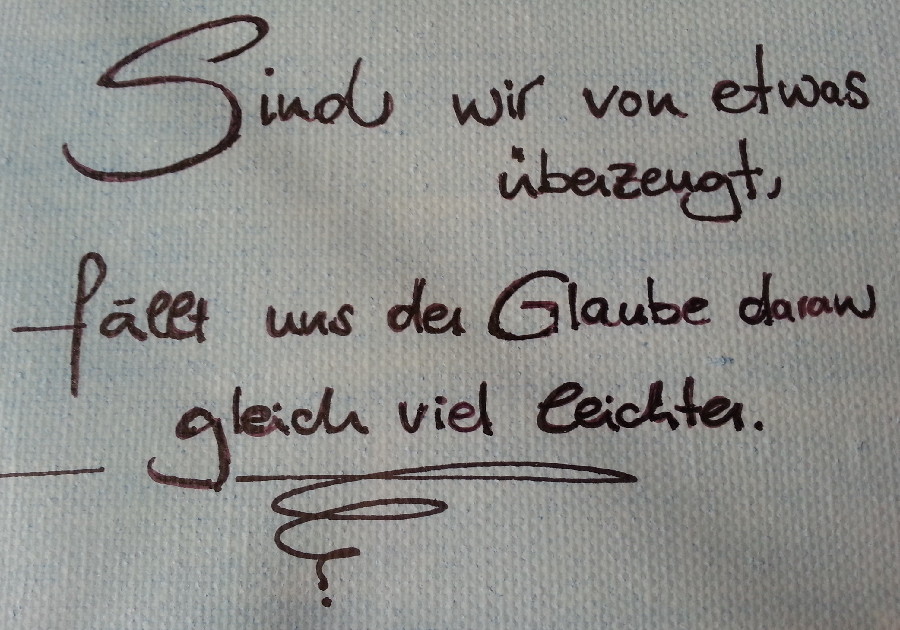 Sind wir von etwas
überzeugt,
fällt uns der Glaube daran
gleich viel leichter.